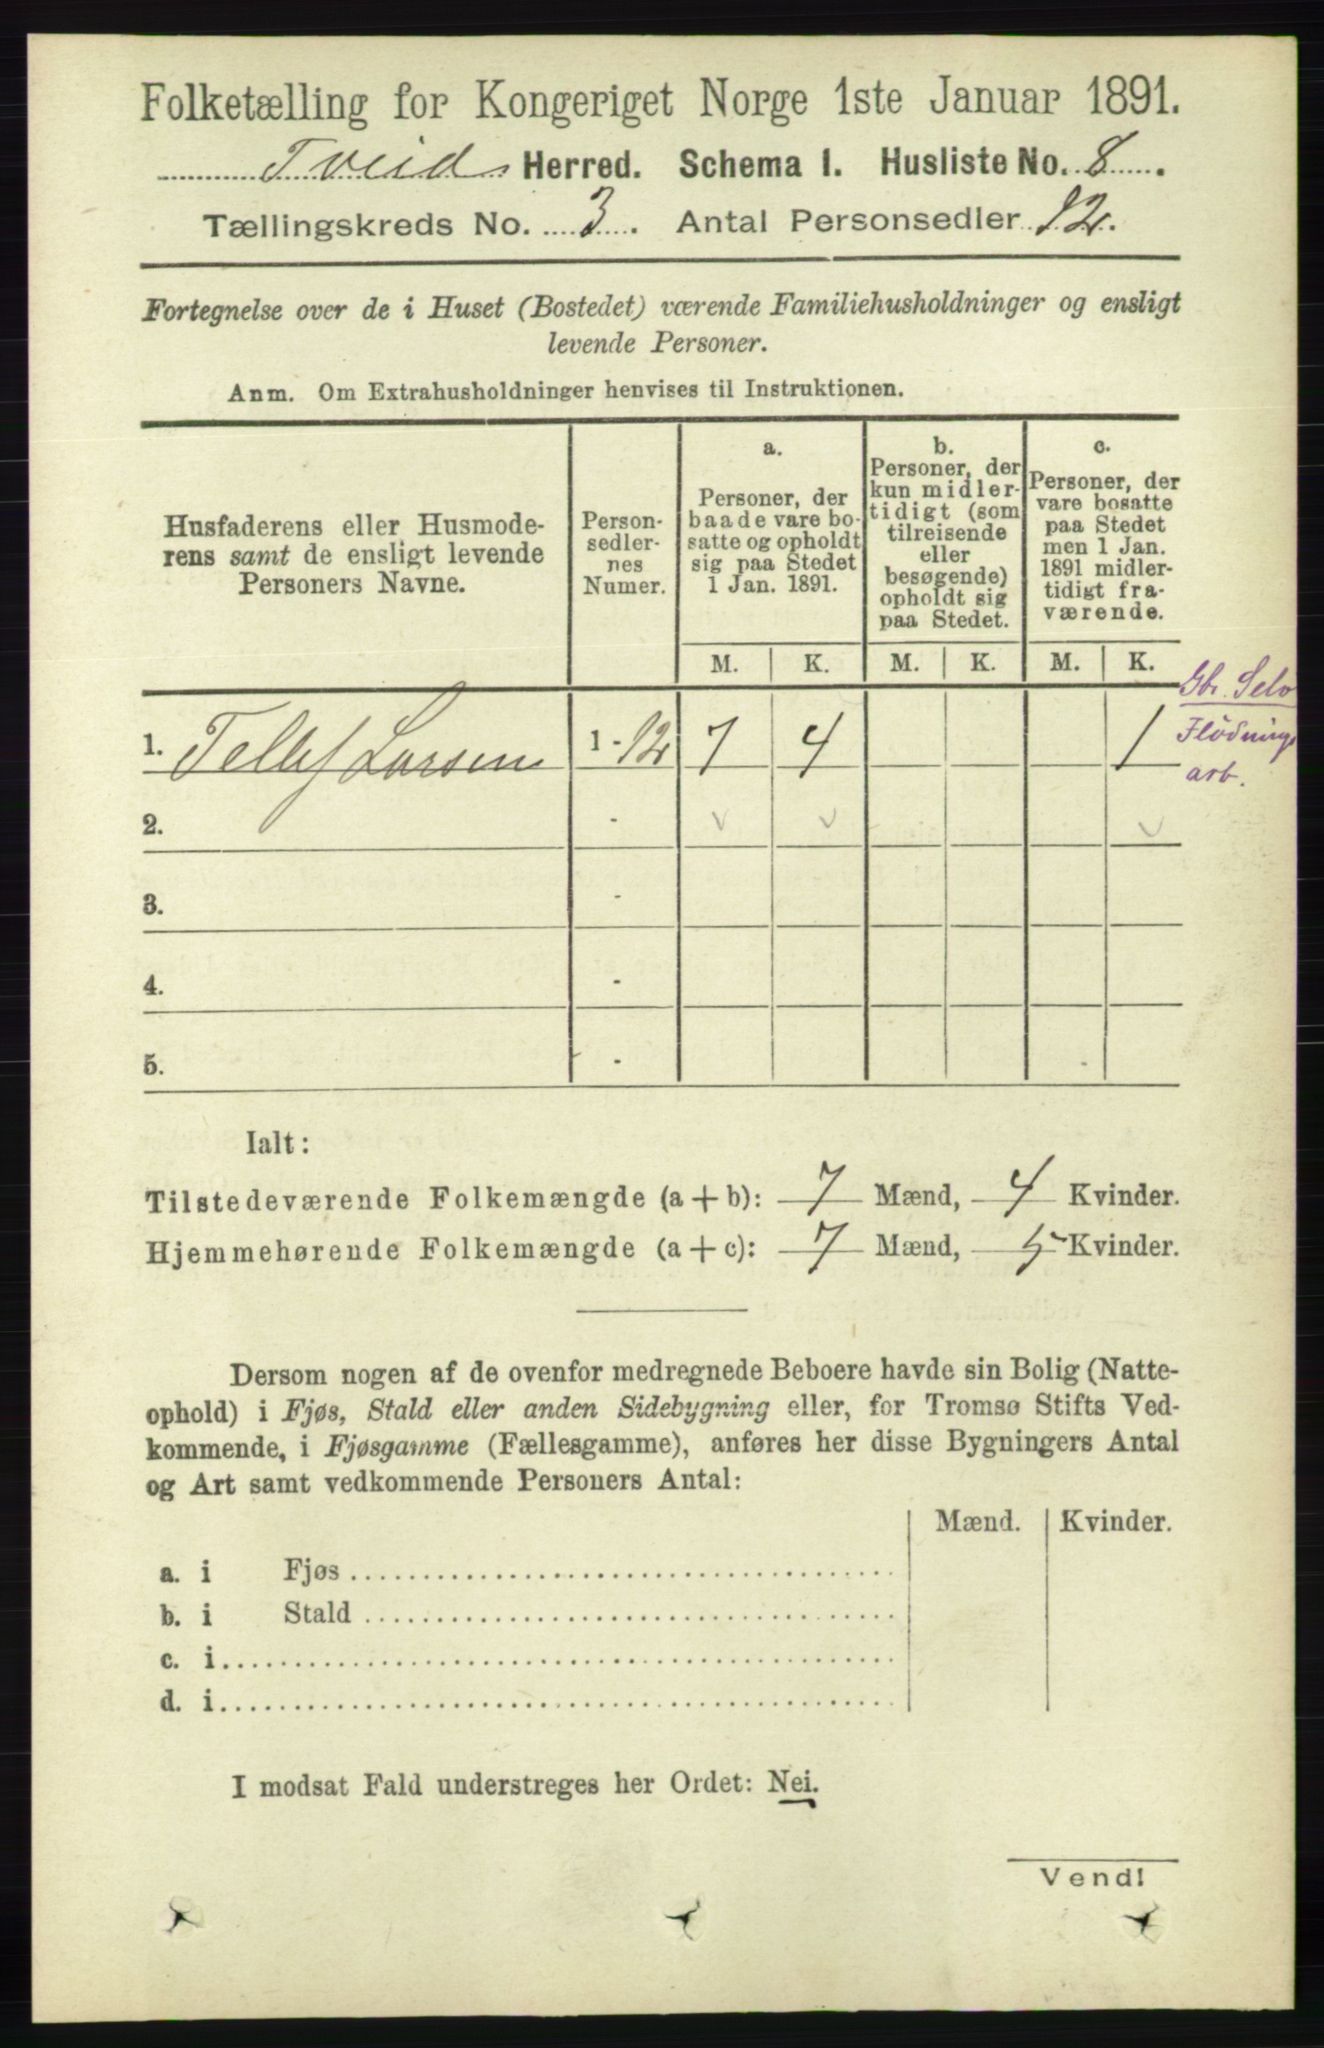 Folketælling for Kongeriget Norge 1ste Januar 1891.
Tveid Herred. Schema 1. Husliste No. 8.
Tællingskreds No. 3. Antal Personsedler 12.
Fortegnelse over de i Huset (Bostedet) værende Familiehusholdninger og ensligt
levende Personer.
Anm. Om Extrahusholdninger henvises til Instruktionen.
Husfaderens eller Husmode-
rens samt de ensligt levende
Personers Navne.
Person-
sedler-
nes
Numer.
a.
Personer, der
baade vare bo-
satte og opholdt
sig paa Stedet
1 Jan. 1891.
b.
Personer, der
kun midler-
tidigt (som
tilreisende
eller
besøgende)
opholdt sig
paa Stedet.
c.
Personer, der
vare bosatte
paa Stedet
men 1 Jan.
1891 midler-
tidigt fra-
værende.
M. K. M. K. M. K.
Gbr. Selv
Flödnings
arb.
1. Tellef Larsen 1 - 12 7 4 1
2. -
3. -
4. -
5. -
Ialt:
Tilstedeværende Folkemængde (a + b): 7 Mænd, 4 Kvinder.
Hjemmehørende Folkemængde (a + c): 7 Mænd, 5 Kvinder.
Dersom nogen af de ovenfor medregnede Beboere havde sin Bolig (Natte-
ophold) i Fjøs, Stald eller anden Sidebygning eller, for Tromsø Stifts Ved-
kommende, i Fjøsgamme (Fællesgamme), anføres her disse Bygningers Antal
og Art samt vedkommende Personers Antal:
Mænd. Kvinder.
a. i Fjøs
b. i Stald
c. i
d. i
I modsat Fald understreges her Ordet: Nei.
Vend!